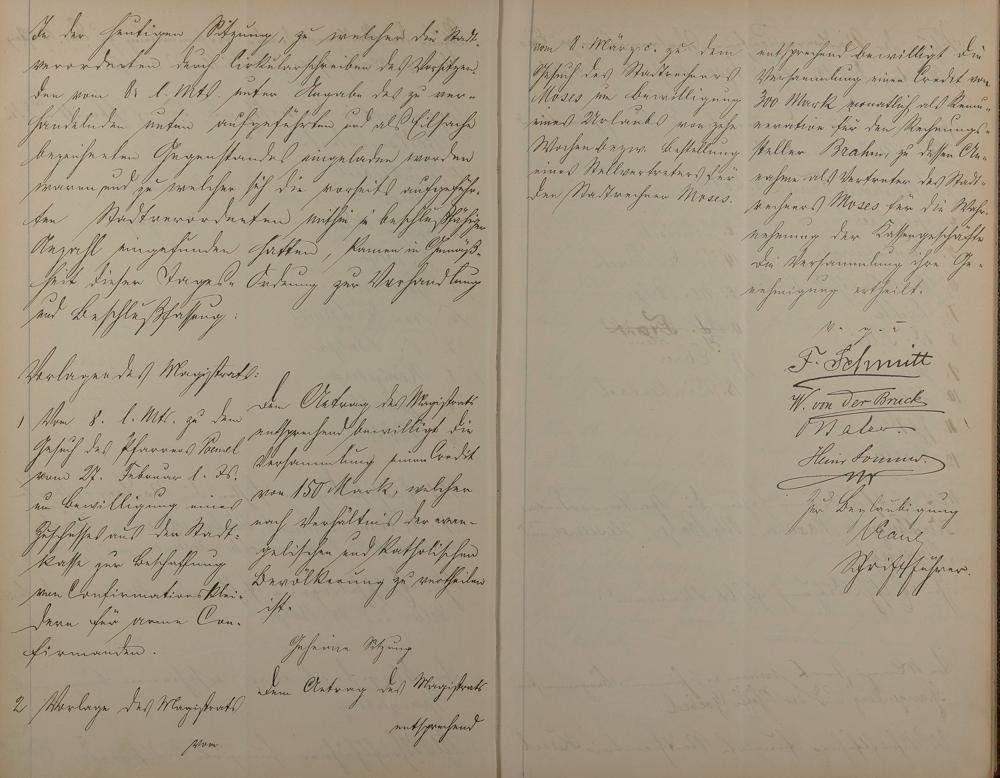 In der heutigen Sitzung, zu welcher die Stadt-
verordneten durch Cirkularschreiben des Vorsitzen-
den vom 6 l. Mts. unter Angabe des zu ver-
handelnden unten aufgeführten und als Eilsache
bezeichneten Gegenstandes eingeladen worden
waren und zu welcher sich die vorseits aufgeführ-
ten Stadtverordneten mithin in beschlußfähiger
Anzahl eingefunden hatten, kamen in Gemäß-
heit dieser Tages-Ordnung zur Verhandlung
und Beschlußfassung:
Vorlagen des Magistrats:
1 Vom 8. l. Mts. zu dem
Gesuch des Pfarrers
vom 27. Februar l. Js.
um Bewilligung eines
Zuschusses aus der Stadt-
kasse zur Beschaffung
von Confirmationsklei-
dern für arme Con-
firmanden.
Dem Antrag des Magistrats
entsprechend bewilligt die
Versammlung einen Credit
von 150 Mark, welcher
nach Verhältnis der evan-
gelischen und katholischen
Bevölkerung zu vertheilen
ist.
Geheime Sitzung
2 Vorlage des Magistrats
vom
Dem Antrag des Magistrats
entsprechend
vom 8. März c. zu dem
Gesuch des Stadtrechners
Moses um Bewilligung
eines Urlaubs von zehn
Wochen bezw. Bestellung
eines Stellvertreters für
den Stadtrechner Moses.
entsprechend bewilligt die
Versammlung einen Credit von
300 Mark monatlich als Remu-
neration für den Rechnungs-
steller Brahm, zu dessen An-
nahme als Vertreter des Stadt-
rechners Moses für die Wahr-
nehmung der Kassengeschäfte
die Versammlung ihre Ge-
nehmigung ertheilt.
v. g. u
F. Schmitt
W. von der Bruck
Heinr Sommer.
Zur Beglaubigung
Schriftführer.